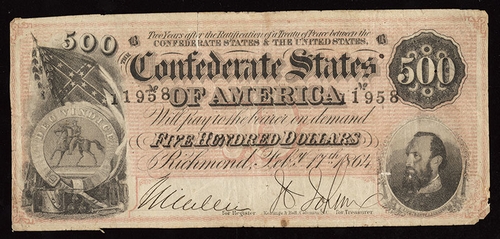 Two Years after the Ratification of a Treaty of Peace between the
CONFEDERATE STATES & THE UNITED STATES,
500 B B
THE Confederate States 500
No 11958 OF AMERICA No 11958
Will pay to the bearer on demand
FIVE HUNDRED DOLLARS
Richmond, Feb.y 17th, 1864
DEO VINDICE
for Register for Treasurer